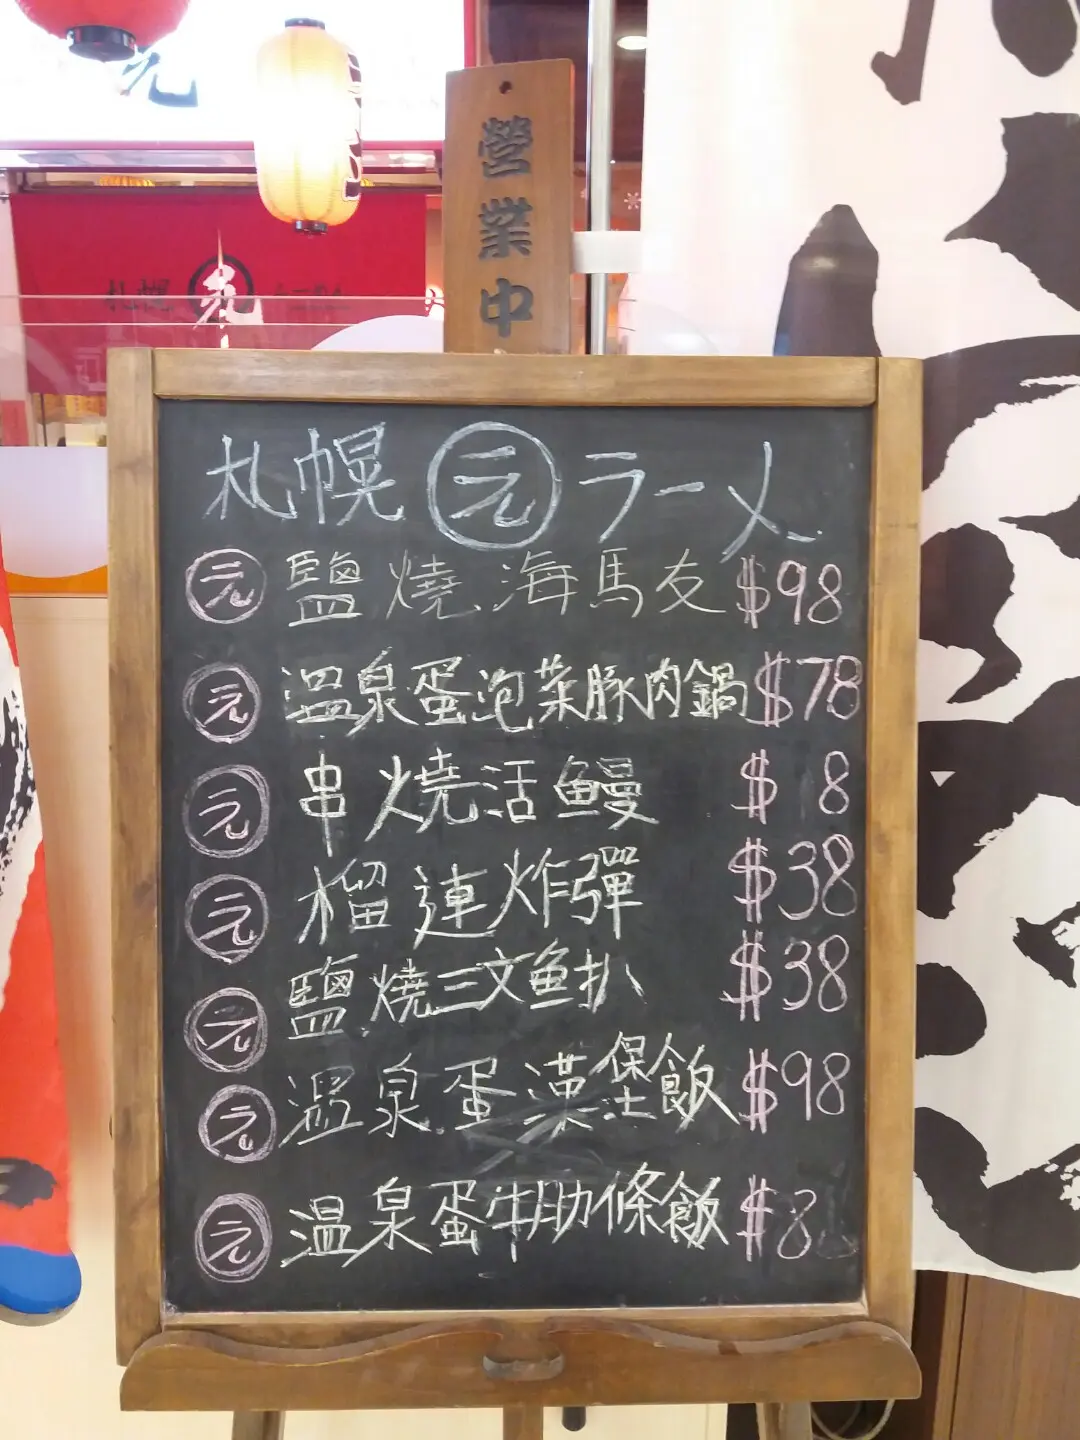 元
營業中
札幌 元
札幌 元 ラーメン
元 鹽燒海馬友 $98
元 温泉蛋泡菜豚肉鍋 $78
元 串燒活鰻 $8
元 榴連炸彈 $38
元 鹽燒三文魚扒 $38
元 温泉蛋漢堡飯 $98
元 温泉蛋牛肋條飯 $8